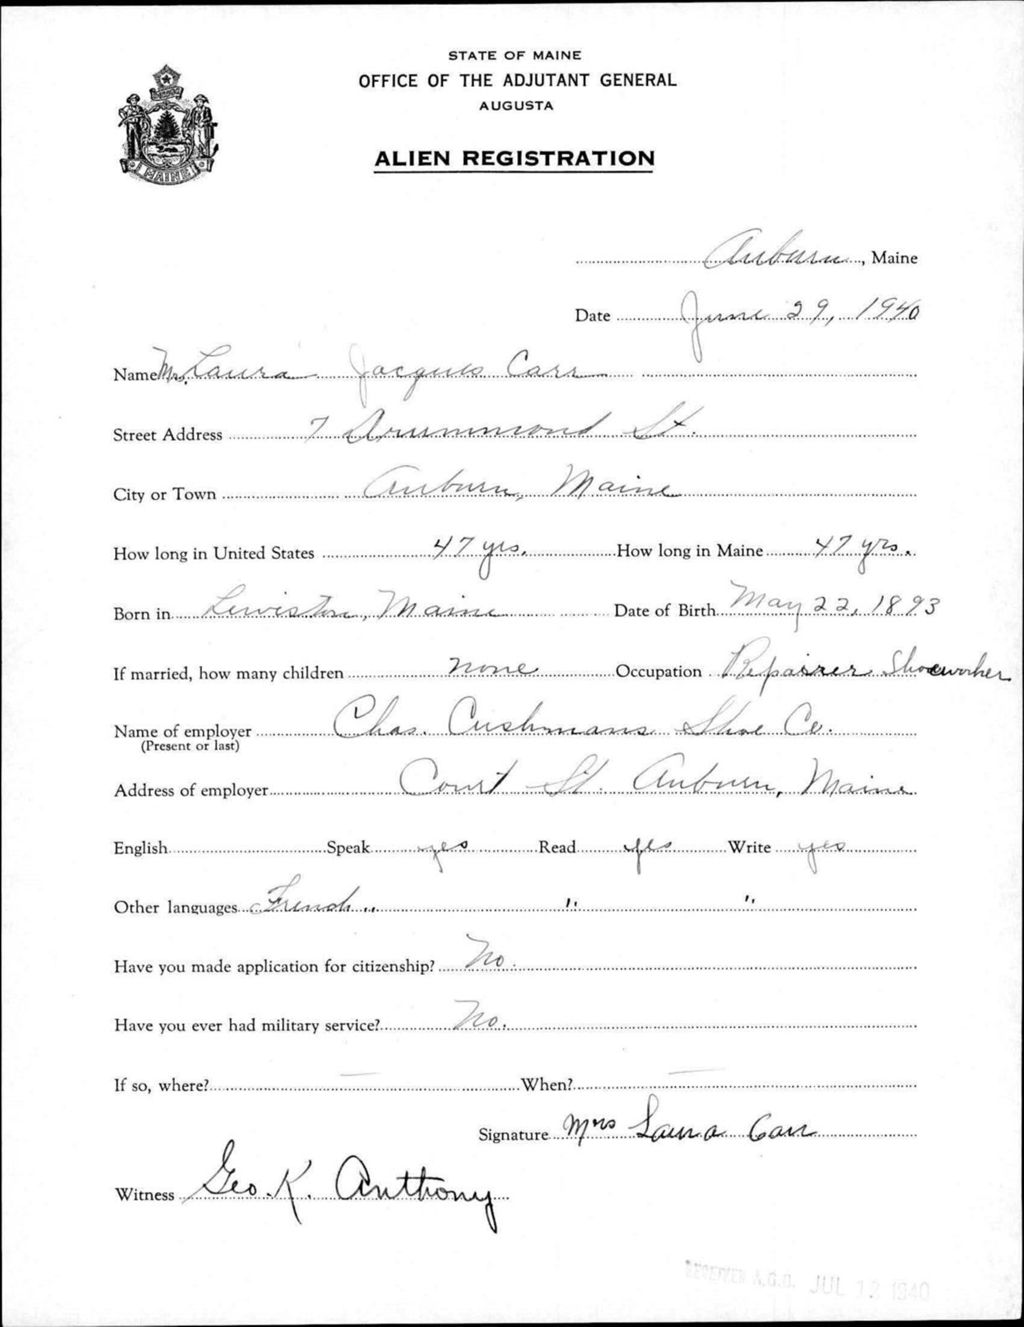 STATE OF MAINE
OFFICE OF THE ADJUTANT GENERAL
AUGUSTA
ALIEN REGISTRATION
MAINE
Auburn, Maine
Date June 29, 1940
Name Mrs. Laura Jacques Carr
Street Address 7 Drummond St.
City or Town Auburn, Maine
How long in United States 47 yrs. How long in Maine 47 yrs.
Born in Lewiston, Maine Date of Birth May 22, 1893
If married, how many children none Occupation Repairer Shoeworker
Name of employer Chas. Cushmans Shoe Co.
(Present or last)
Address of employer Court St. Auburn, Maine
English Speak yes Read yes Write yes
Other languages French " " "
Have you made application for citizenship? No.
Have you ever had military service? No.
If so, where? — When? —
Signature Mrs Laura Carr
Witness Geo. K. Anthony
RECEIVED A.G.O. JUL 12 1940